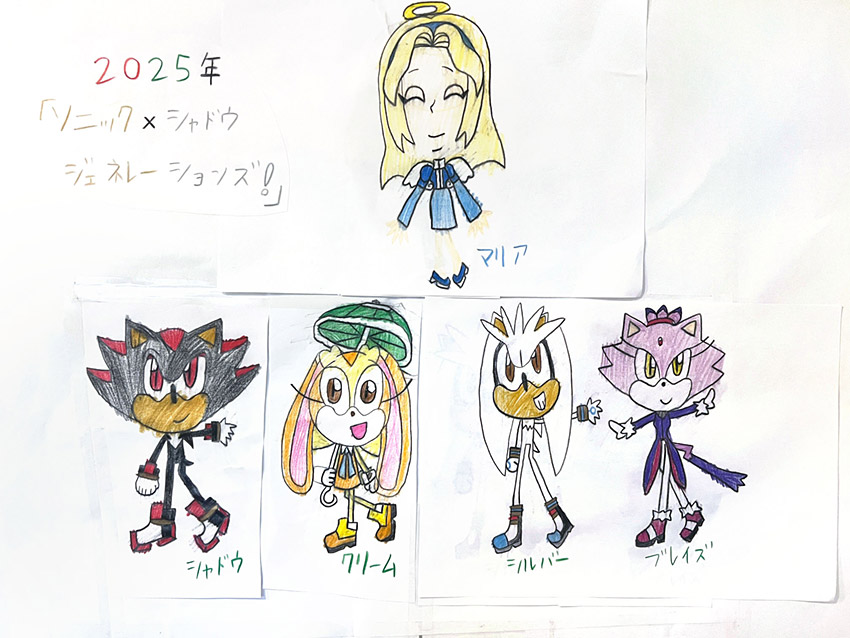 2025年
「ソニック×シャドウ
ジェネレーションズ!。」
マリア
シャドウ
クリーム
シルバー
ブレイズ